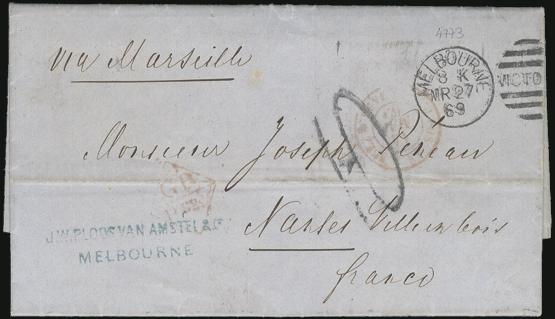 4773
via Marseille
MELBOURNE
8 K
MR 27
69
VICTO
Monsieur Joseph
Nantes
J.W. PLOOS VAN AMSTEL & Co
MELBOURNE
franco